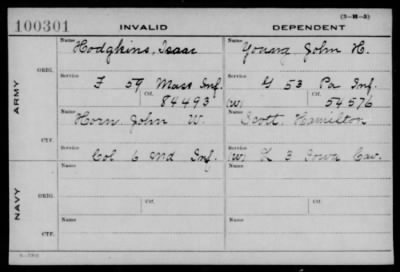 (3-M-3)
100301 INVALID DEPENDENT
Name Name
Hodgkins, Isaac Young John H.
ORIG.
Service Service
F 59 Mass Inf. G 53 Pa Inf.
Ctf. Ctf.
84493 (W) 54576
ARMY
Name Name
Horn John W. Scott Hamilton
CTF.
Service Service
Col 6 Md Inf. (W) L 3 Iowa Cav.
Name Name
ORIG.
Service Ctf. Service Ctf.
NAVY
Name Name
CTF.